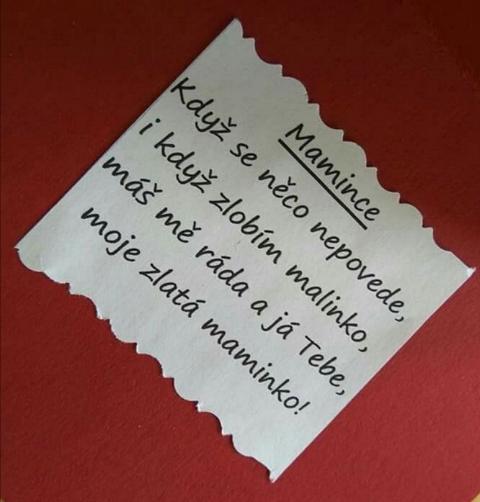 Mamince
Když se něco nepovede,
i když zlobím malinko,
máš mě ráda a já Tebe,
moje zlatá maminko!